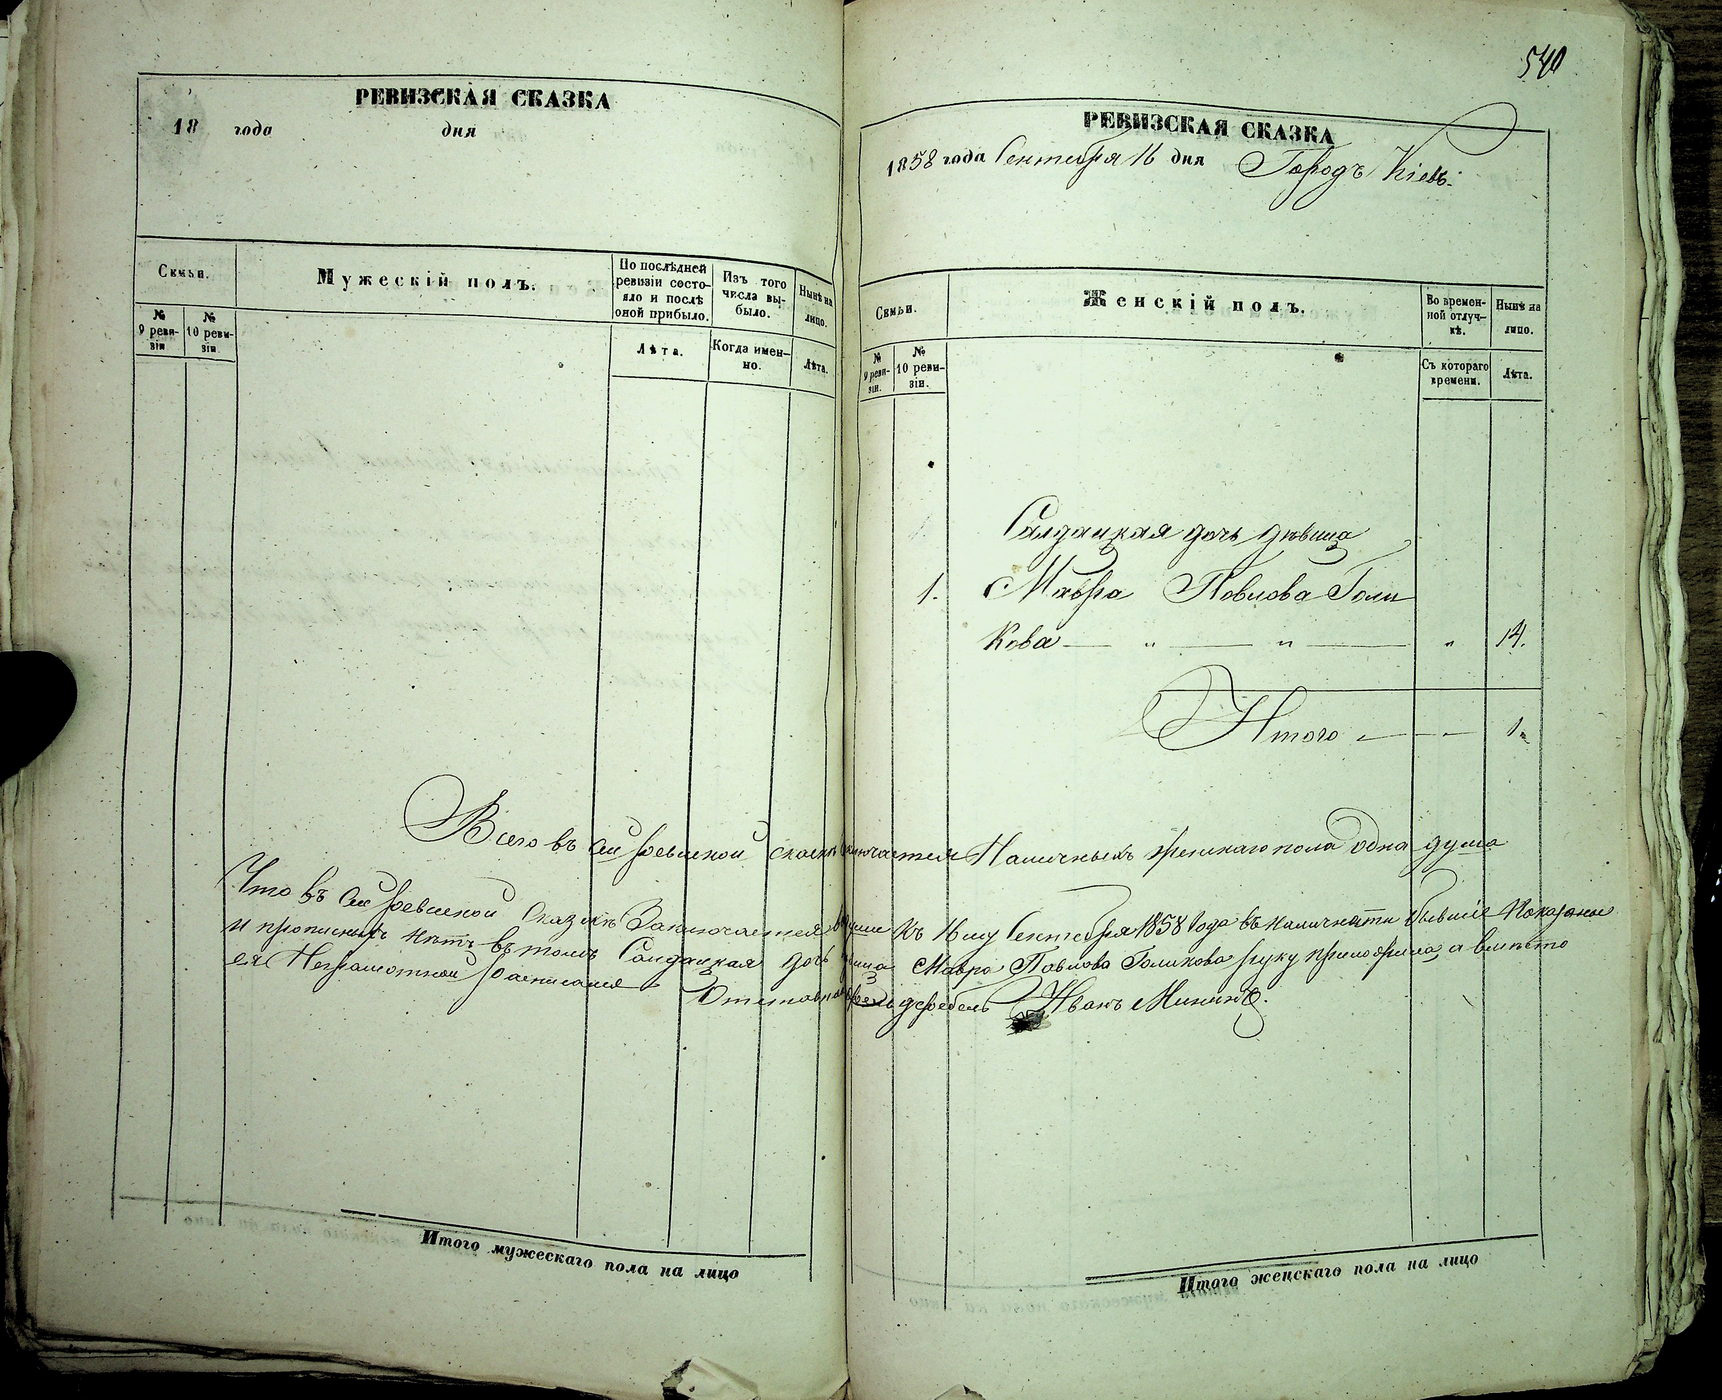 РЕВИЗСКАЯ СКАЗКА
18 года дня
Семьи.
Мужескій полъ.
По послѣдней ревизіи состо-
яло и послѣ
оной прибыло.
Изъ того
числа вы-
было.
Нынѣ на
лицо.
№
9 реви-
зіи
№
10 реви-
зіи.
Лѣта.
Когда имен-
но.
Лѣта.
540
РЕВИЗСКАЯ СКАЗКА
1858 года Сентября 16 дня Городъ Кіевъ.
Семьи.
Женскій полъ.
Во времен-
ной отлуч-
кѣ.
Нынѣ на
лицо.
№
9 реви-
зіи.
№
10 реви-
зіи.
Съ котораго
времени.
Лѣта.
Салдацкая дочь дѣвица
1. Мавра Павлова Голи
кова — „ — „ — „ 14.
Итого — — 1.
Всего въ сей ревиской сказкѣ заключается Наличныхъ женскаго пола одна душа
Что въ сей ревиской сказкѣ Заключается всѣ души къ 16му Сентября 1858 Года въ наличнети бывшіе показаны
и прописныхъ нѣтъ въ томъ Салдацкая дочь дѣвица Мавра Павлова Голикова руку приложила, а вместо
ея Неграмотной расписался Отставной фельдфебель Иванъ Мининъ.
Итого мужескаго пола на лицо
Итого женскаго пола на лицо